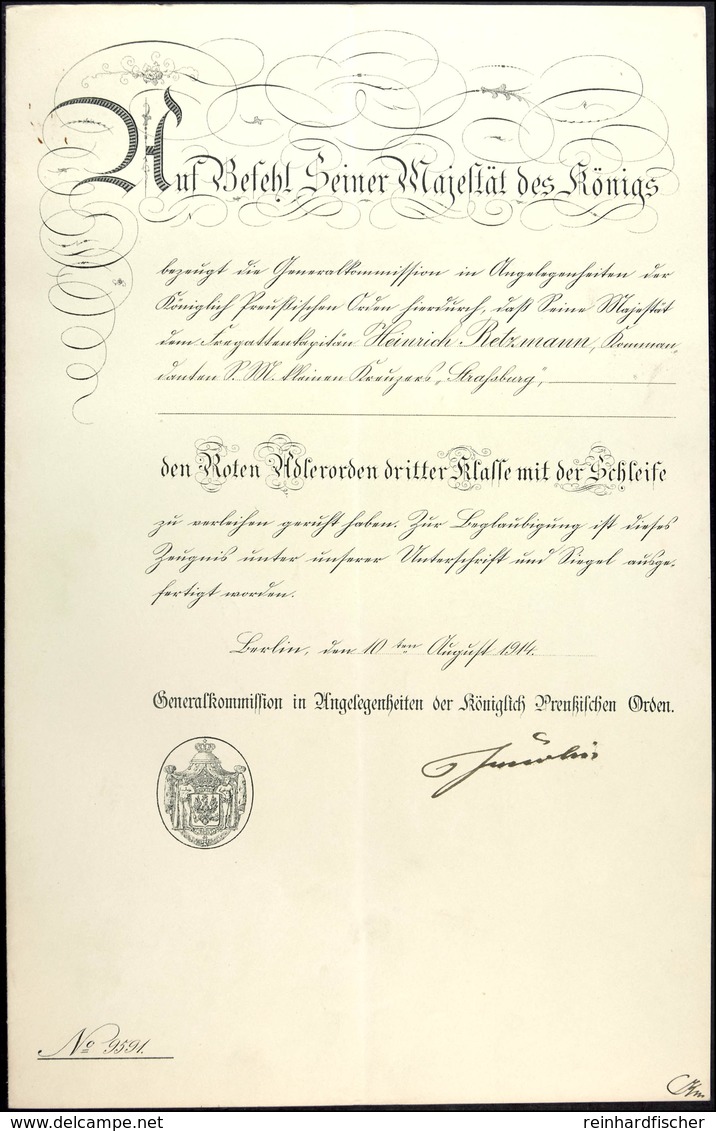 Auf Befehl Seiner Majestät des Königs
bezeugt die Generalkommission in Angelegenheiten der
Königlich Preußischen Orden hierdurch, daß Seine Majestät
dem Fregattenkapitän Heinrich Retzmann, Komman„
danten S. M. kleinen Kreuzers „Straßburg“,
den Roten Adlerorden dritter Klasse mit der Schleife
zu verleihen geruht haben. Zur Beglaubigung ist dieses
Zeugnis unter unserer Unterschrift und Siegel ausge-
fertigt worden.
Berlin, den 10ten August 1914.
Generalkommission in Angelegenheiten der Königlich Preußischen Orden.
No 9591.
reinhardfischer